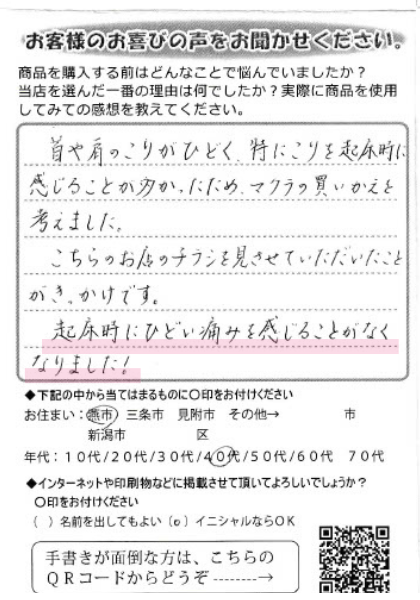 お客様のお喜びの声をお聞かせください。
商品を購入する前はどんなことで悩んでいましたか？
当店を選んだ一番の理由は何でしたか？実際に商品を使用
してみての感想を教えてください。
首や肩のこりがひどく、特にこりを起床時に
感じることが多かったため、マクラの買いかえを
考えました。
こちらのお店のチラシを見させていただいたこと
がきっかけです。
起床時にひどい痛みを感じることがなく
なりました！
◆下記の中から当てはまるものに〇印をお付けください
お住まい：燕市 三条市 見附市 その他→ 市
新潟市 区
年代：10代/20代/30代/40代/50代/60代 70代
◆インターネットや印刷物などに掲載させて頂いてよろしいでしょうか？
〇印をお付けください
（ ）名前を出してもよい（o）イニシャルならOK
手書きが面倒な方は、こちらの
QRコードからどうぞ--------→